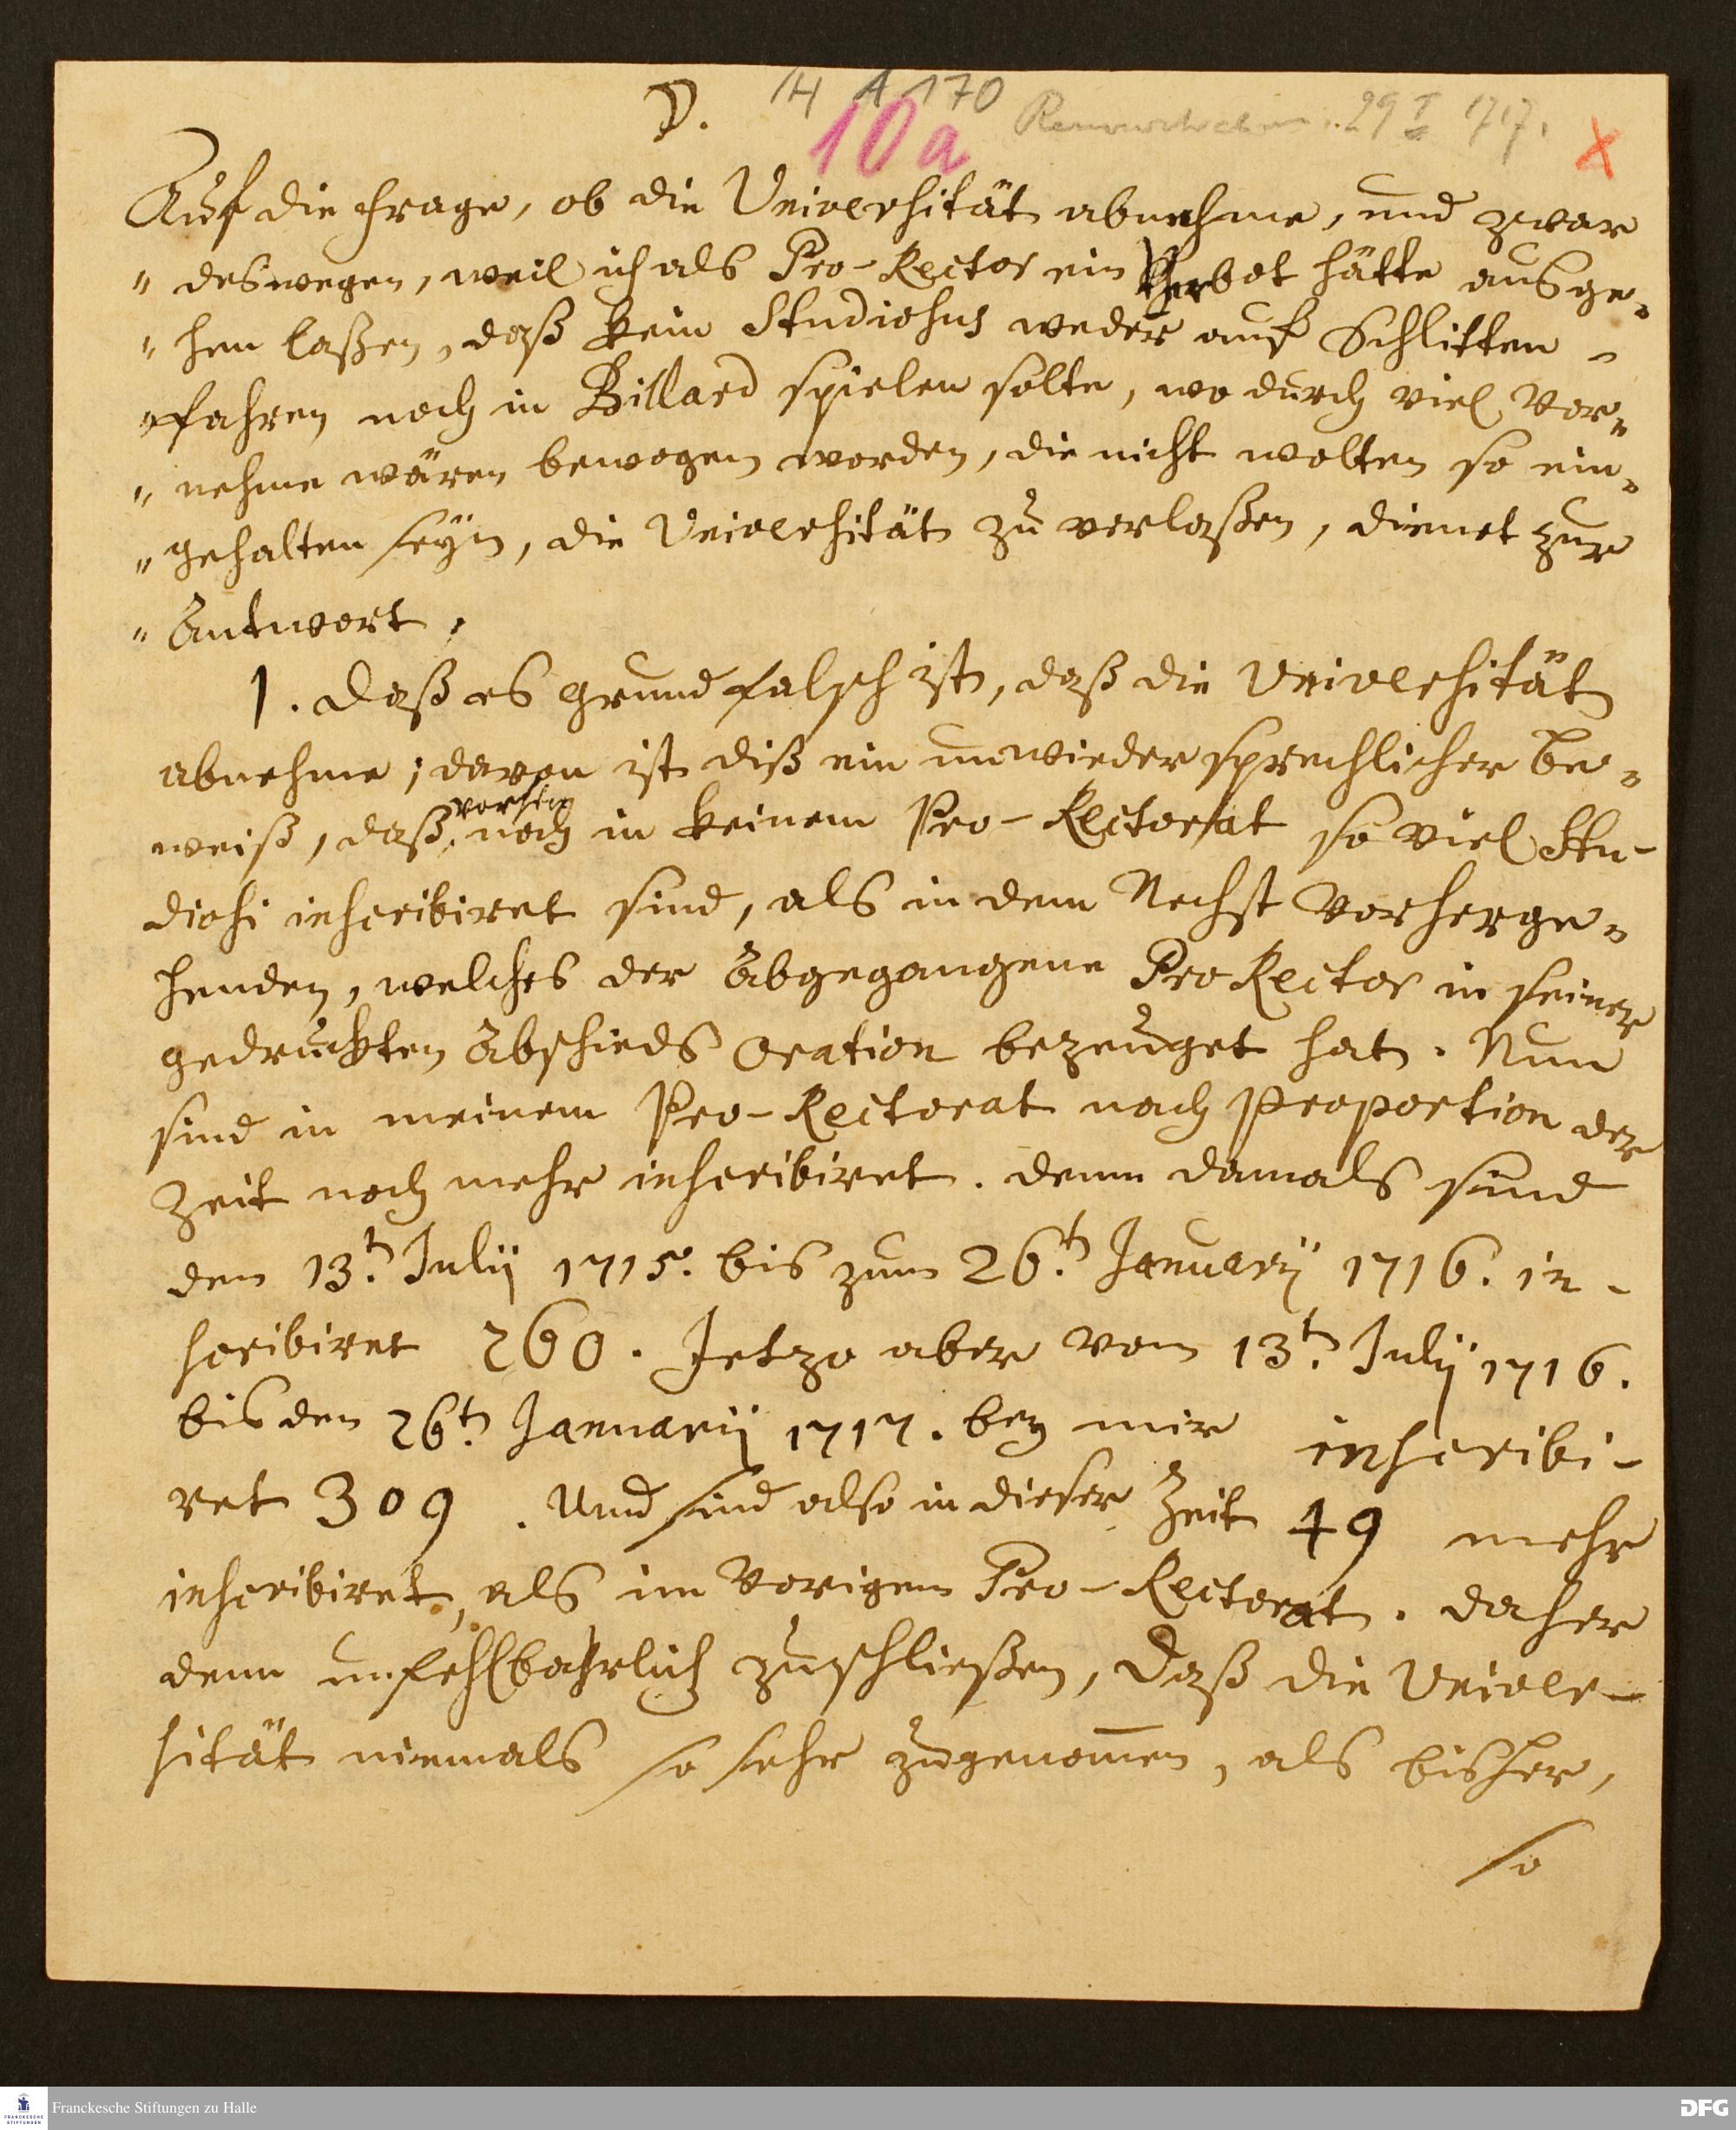 D. H A 170
10a 29 I 1717. X
Auf die Frage, ob die Universität abnehme, und zwar
" deswegen, weil ich als Pro-Rector ein Verbot hätte ausge-
" hen laßen, daß kein Studiosus weder auf Schlitten -
" fahren noch in Billard spielen solte, wo durch viel Vor-
" nehme wären bewogen worden, die nicht wolten so ein-
" gehalten seyn, die Universität zu verlaßen, dienet zur
" Antwort,
1. Daß es grund falsch ist, daß die Universität
abnehme; davon ist diß ein unwiedersprechlicher Be-
vorhin
weiß, daß, noch in keinem Pro-Rectorat so viel Stu-
diosi inscribiret sind, als in dem Nechst Vorherge-
henden, welches der Abgegangene ProRector in seiner
gedruckten Abschieds Oration bezeuget hat. Nun
sind in meinem Pro-Rectorat nach Proportion der
Zeit noch mehr inscribiret. Denn damals sind
den 13.t Julij 1715. bis zum 26.t Januarij 1716. in-
scribiret 260. Jetzo aber vom 13.t Julij 1716.
bis den 26.t Januarij 1717. bey mir inscribi-
ret 309. Und sind also in dieser Zeit 49 mehr
inscribiret, als im Vorigen Pro-Rectorat. Daher
denn unfehlbahrlich zuschließen, Daß die Univer-
sität niemals so sehr zugenom̄en, als bisher,
so
FRANCKESCHE STIFTUNGEN
Franckesche Stiftungen zu Halle
DFG